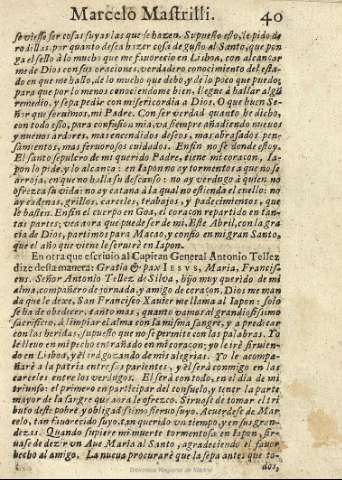 Marcelo Mastrilli. 40
se viesse ser cosas suyas las que se hazen. Supuesto esto, le pido de
rodillas por quanto desea hazer cosa de gusto al Santo, que pon
ga el sello à lo mucho que me favorecio en Lisboa, con alcançar
me de Dios con sus oraciones, verdadero conocimiento del esta-
do en que me hallo, de lo mucho que debo, y de lo poco que puedo,
para que por lo menos conociendome bien, llegue à hallar algũ
remedio, y sepa pedir con misericordia a Dios. O que buen Se-
ñor que seruimos, mi Padre. Con ser verdad quanto he dicho,
con todo esso, para confusion mia, va siempre añadiendo nueuos
y nueuos ardores, mas encendidos deseos, mas abrasados pen-
samientos, mas feruorosos cuidados. Enfin no se donde estoy.
El santo sepulcro de mi querido Padre, tiene mi coraçon, Ia-
pon lo pide, y lo alcança: en Iapon no ay tormentos a que no se
arroja, en que no halla su descanso: no ay verdugo à quien no
ofrezca su vida: no ay catana à la qual no estienda el cuello: no
ay cadenas, grillos, carceles, trabajos, y padecimientos, que
le basten. Enfin el cuerpo en Goa, el coraçon repartido en tan-
tas partes; vea ora que puede ser de mi. Este Abril, con la gra
cia de Dios, partimos para Macao, y confio en mi gran Santo,
que el año que viene le serure en Iapon.
En otra que escriuio al Capitan General Antonio Tellez
dize desta manera: Gratia & pax IESVS, Maria, Francis-
cus. Señor Antonio Tellez de Silva, hijo muy querido de mi
alma, compañero de jornada, y amigo de coraçon, Dios me man
da que le dexe, San Francisco Xavier me llama al Iapon: solo
se ha de obedecer, tanto mas, quanto vamos al grandiosissimo
sacrificio, à limpiar el alma con la misma sangre, y a predicar
con las heridas, supuesto que no se permite con las palabras. Yo
le lleuo en mi pecho entrañado en mi coraçon; yo le irè siruien-
do en Lisboa, y el irà gozando de mis alegrias. Yo le acompa-
ñarè a la patria entre sus parientes, y el serà conmigo en las
carceles entre los verdugos. El serà con todo, en el dia de mi
triunfo: el primero en participar del consuelo, y tener la parte
mayor de la sangre que aora le ofrezco. Siruase de tomar el tri
buto deste pobre, y obligadissimo sieruo suyo. Acuerdese de Mar-
celo, tan fauorecido suyo, tan querido vn tiempo, y en sus gran-
dezas. Quando supiere mi muerte tormentosa en Iapon, sir-
uase de dezir vn Aue Maria al Santo, agradeciendo el fauor
hecho al amigo. La nueua procurarè que la sepa antes que to-
dos,
Biblioteca Regional de Madrid